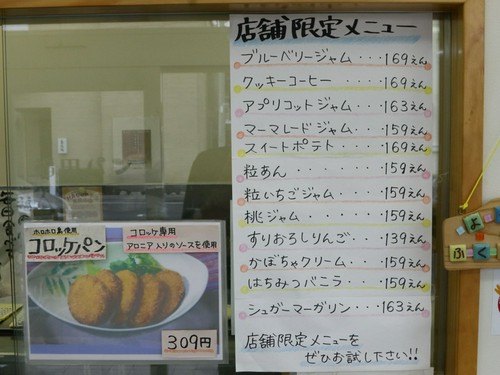 店舗限定メニュー
ブルーベリージャム・・・169えん
クッキーコーヒー・・・・169えん
アプリコットジャム・・・163えん
マーマレードジャム・・・・159えん
スイートポテト・・・・169えん
粒あん・・・・・・159えん
粒いちごジャム・・・・159えん
桃ジャム・・・・・159えん
すりおろしりんご・・・139えん
かぼちゃクリーム・・・159えん
はちみつバニラ・・・・159えん
シュガーマーガリン・・・163えん
店舗限定メニューを
ぜひお試し下さい!!
ホロホロ鳥使用
コロッケパン
コロッケ専用
アロニア入りのソースを使用
309円